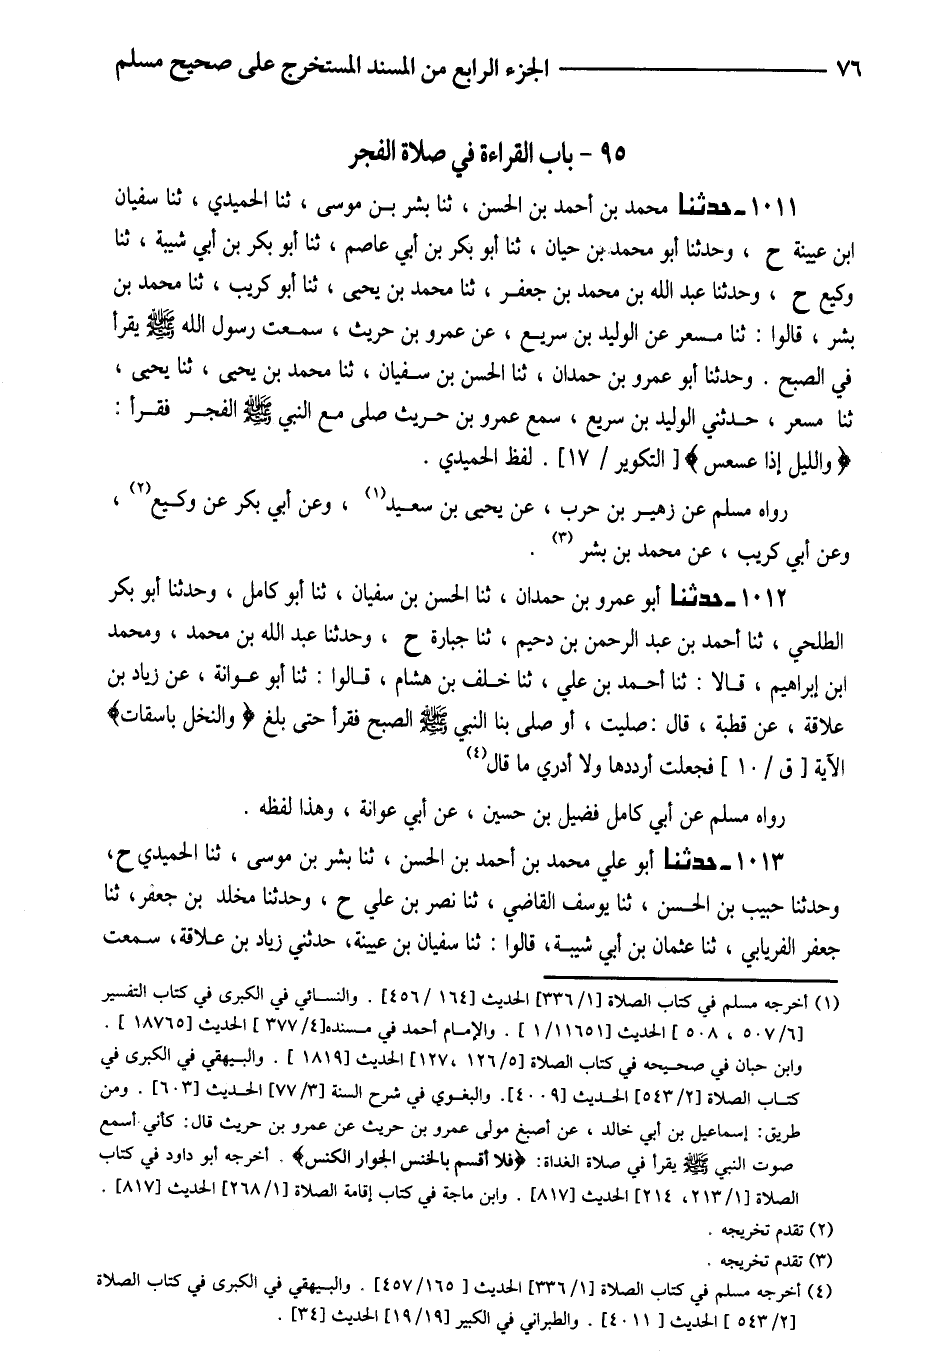 ٧٦ ــــــــــــ الجزء الرابع من المسند المستخرج على صحيح مسلم
٩٥ - باب القراءة في صلاة الفجر
١٠١١ ـ حدثنا محمد بن أحمد بن الحسن ، ثنا بشر بن موسى ، ثنا الحميدي ، ثنا سفيان
ابن عيينة ح ، وحدثنا أبو محمد بن حيان ، ثنا أبو بكر بن أبي عاصم ، ثنا أبو بكر بن أبي شيبة ، ثنا
وكيع ح ، وحدثنا عبد الله بن محمد بن جعفر ، ثنا محمد بن يحيى ، ثنا أبو كريب ، ثنا محمد بن
بشر ، قالوا : ثنا مسعر عن الوليد بن سريع ، عن عمرو بن حريث ، سمعت رسول الله ﷺ يقرأ
في الصبح . وحدثنا أبو عمرو بن حمدان ، ثنا الحسن بن سفيان ، ثنا محمد بن يحيى ، ثنا يحيى ،
ثنا مسعر ، حدثني الوليد بن سريع ، سمع عمرو بن حريث صلى مع النبي ﷺ الفجر فقرأ :
﴿ والليل إذا عسعس ﴾ [ التكوير / ١٧] . لفظ الحميدي .
رواه مسلم عن زهير بن حرب ، عن يحيى بن سعيد(١) ، وعن أبي بكر عن وكيع(٢) ،
وعن أبي كريب ، عن محمد بن بشر (٣) .
١٠١٢ ـ حدثنا أبو عمرو بن حمدان ، ثنا الحسن بن سفيان ، ثنا أبو كامل ، وحدثنا أبو بكر
الطلحي ، ثنا أحمد بن عبد الرحمن بن دحيم ، ثنا جبارة ح ، وحدثنا عبد الله بن محمد ، ومحمد
ابن إبراهيم ، قالا : ثنا أحمد بن علي ، ثنا خلف بن هشام ، قالوا : ثنا أبو عوانة ، عن زياد بن
علاقة ، عن قطبة ، قال : صليت ، أو صلى بنا النبي ﷺ الصبح فقرأ حتى بلغ ﴿ والنخل باسقات﴾
الآية [ ق / ١٠ ] فجعلت أرددها ولا أدري ما قال(٤)
رواه مسلم عن أبي كامل فضيل بن حسين ، عن أبي عوانة ، وهذا لفظه .
١٠١٣ ـ حدثنا أبو علي محمد بن أحمد بن الحسن ، ثنا بشر بن موسى ، ثنا الحميدي ح،
وحدثنا حبيب بن الحسن ، ثنا يوسف القاضي ، ثنا نصر بن علي ح ، وحدثنا مخلد بن جعفر، ثنا
جعفر الفريابي ، ثنا عثمان بن أبي شيبة، قالوا : ثنا سفيان بن عيينة، حدثني زياد بن علاقة، سمعت
(١) أخرجه مسلم في كتاب الصلاة [١/ ٣٣٦] الحديث [١٦٤ /٤٥٦] . والنسائي في الكبرى في كتاب التفسير
[٦/ ٥٠٧ ، ٥٠٨ ] الحديث [١١٦٥١/ ١] . والإمام أحمد في مسنده[٤/ ٣٧٧ ] الحديث [١٨٧٦٥ ] .
وابن حبان في صحيحه في كتاب الصلاة [٥/ ١٢٦ ،١٢٧] الحديث [١٨١٩ ] . والبيهقي في الكبرى في
كتاب الصلاة [٢/ ٥٤٣] الحديث [٤٠٠٩]. والبغوي في شرح السنة [٣/ ٧٧] الحديث [٦٠٣] . ومن
طريق: إسماعيل بن أبي خالد ، عن أصبغ مولى عمرو بن حريث عن عمرو بن حريث قال: كأني أسمع
صوت النبي ﷺ يقرأ في صلاة الغداة: ﴿فلا أقسم بالخنس الجوار الكنس﴾ . أخرجه أبو داود في كتاب
الصلاة [١/ ٢١٣، ٢١٤] الحديث [٨١٧] . وابن ماجة في كتاب إقامة الصلاة [١/ ٢٦٨] الحديث [٨١٧] .
(٢) تقدم تخريجه .
(٣) تقدم تخريجه .
(٤) أخرجه مسلم في كتاب الصلاة [١/ ٣٣٦] الحديث [ ١٦٥/ ٤٥٧] . والبيهقي في الكبرى في كتاب الصلاة
[٢/ ٥٤٣ ] الحديث [ ٤٠١١] . والطبراني في الكبير [١٩/ ١٩] الحديث [٣٤] .